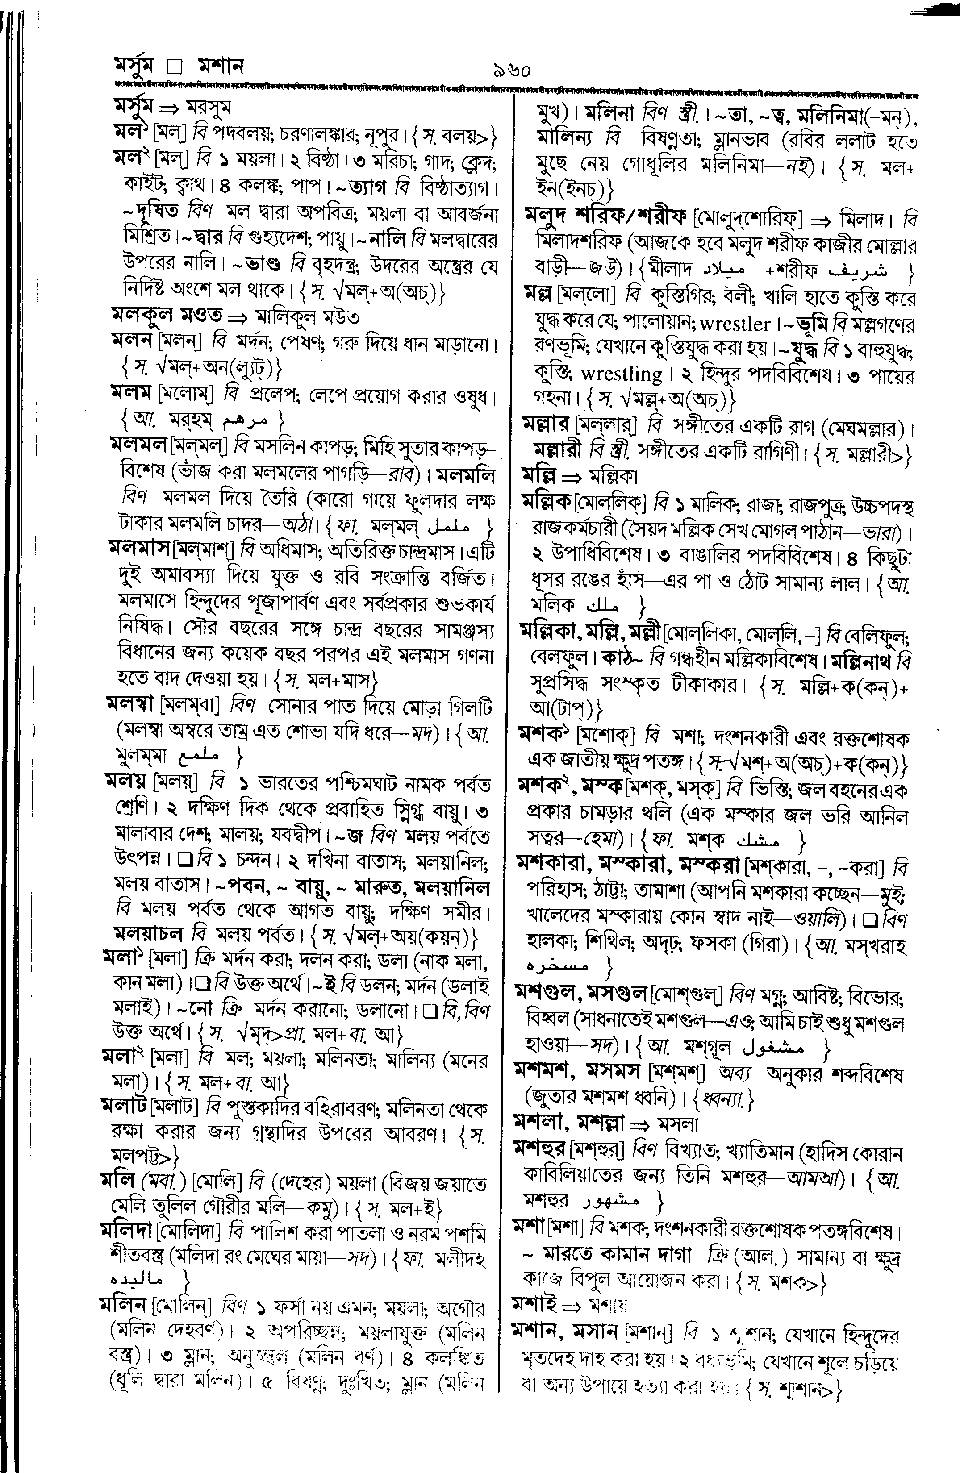 মর্সুম □ মশান
৯৬০
মর্সুম ⇒ মরসুম
মল¹ [মল্] বি পদবলয়; চরণালঙ্কার; নূপুর। {স. বলয়>}
মল² [মল্] বি ১ ময়লা। ২ বিষ্ঠা। ৩ মরিচা; গাদ; ক্লেদ;
কাইট; ক্বাথ। ৪ কলঙ্ক; পাপ। ~ত্যাগ বি বিষ্ঠাত্যাগ।
~দূষিত বিণ মল দ্বারা অপবিত্র; ময়লা বা আবর্জনা
মিশ্রিত। ~দ্বার বি গুহ্যদেশ; পায়ু। ~নালি বি মলদ্বারের
উপরের নালি। ~ভাণ্ড বি বৃহদন্ত্র; উদরের অন্ত্রের যে
নির্দিষ্ট অংশে মল থাকে। {স. √মল্+অ(অচ্)}
মলকুল মওত ⇒ মালিকুল মউত
মলন [মলন্] বি মর্দন; পেষণ; গরু দিয়ে ধান মাড়ানো।
{স. √মল্+অন(ল্যুট্)}
মলম [মলোম্] বি প্রলেপ; লেপে প্রয়োগ করার ওষুধ।
{আ. মর্‌হম্ مرهم }
মলমল [মল্‌মল্] বি মসলিন কাপড়; মিহি সুতার কাপড়-
বিশেষ (ভাঁজ করা মলমলের পাগড়ি—রবি)। মলমলি
বিণ মলমল দিয়ে তৈরি (কারো গায়ে ফুলদার লক্ষ
টাকার মলমলি চাদর—অঠা)। {ফা. মল্‌মল্ ململ }
মলমাস [মল্‌মাশ্] বি অধিমাস; অতিরিক্ত চান্দ্রমাস। এটি
দুই অমাবস্যা দিয়ে যুক্ত ও রবি সংক্রান্তি বর্জিত।
মলমাসে হিন্দুদের পূজাপার্বণ এবং সর্বপ্রকার শুভকার্য
নিষিদ্ধ। সৌর বছরের সঙ্গে চন্দ্র বছরের সামঞ্জস্য
বিধানের জন্য কয়েক বছর পরপর এই মলমাস গণনা
হতে বাদ দেওয়া হয়। {স. মল+মাস}
মলম্বা [মলম্‌বা] বিণ সোনার পাত দিয়ে মোড়া গিলটি
(মলম্বা অম্বরে তাম্র এত শোভা যদি ধরে—মদ)। {আ.
মুলম্‌মা ملمع }
মলয় [মলয়্] বি ১ ভারতের পশ্চিমঘাট নামক পর্বত
শ্রেণি। ২ দক্ষিণ দিক থেকে প্রবাহিত স্নিগ্ধ বায়ু। ৩
মালাবার দেশ; মালয়; যবদ্বীপ। ~জ বিণ মলয় পর্বতে
উৎপন্ন। □ বি ১ চন্দন। ২ দখিনা বাতাস; মলয়ানিল;
মলয় বাতাস। ~পবন, ~ বায়ু, ~ মারুত, মলয়ানিল
বি মলয় পর্বত থেকে আগত বায়ু; দক্ষিণ সমীর।
মলয়াচল বি মলয় পর্বত। {স. √মল্+অয়(কয়ন্)}
মলা¹ [মলা] ক্রি মর্দন করা; দলন করা; ডলা (নাক মলা,
কান মলা)। □ বি উক্ত অর্থে। ~ই বি ডলন; মর্দন (ডলাই
মলাই)। ~নো ক্রি মর্দন করানো; ডলানো। □ বি, বিণ
উক্ত অর্থে। {স. √মৃদ্>প্রা. মল+বা. আ}
মলা² [মলা] বি মল; ময়লা; মলিনতা; মালিন্য (মনের
মলা)। {স. মল+বা. আ}
মলাট [মলাট্] বি পুস্তকাদির বহিরাবরণ; মলিনতা থেকে
রক্ষা করার জন্য গ্রন্থাদির উপরের আবরণ। {স.
মলপট্ট>}
মলি (মবা.) [মোলি] বি (দেহের) ময়লা (বিজয় জয়াতে
মেলি তুলিল গৌরীর মলি—কমু)। {স. মল+ই}
মলিদা [মোলিদা] বি পালিশ করা পাতলা ও নরম পশমি
শীতবস্ত্র (মলিদা রং মেঘের মায়া—সদ)। {ফা. মলীদহ
ماليده }
মলিন [মোলিন্] বিণ ১ ফর্সা নয় এমন; ময়লা; অগৌর
(মলিন দেহবর্ণ)। ২ অপরিচ্ছন্ন; ময়লাযুক্ত (মলিন
বস্ত্র)। ৩ ম্লান; অনুজ্জ্বল (মলিন বর্ণ)। ৪ কলঙ্কিত
(ধূলি দ্বারা মলিন)। ৫ বিষণ্ন; দুঃখিত; ম্লান (মলিন
মুখ)। মলিনা বিণ স্ত্রী। ~তা, ~ত্ব, মলিনিমা(-মন্),
মালিন্য বি বিষণ্নতা; ম্লানভাব (রবির ললাট হতে
মুছে নেয় গোধূলির মলিনিমা—নই)। {স. মল+
ইন(ইনচ্)}
মলুদ শরিফ/শরীফ [মোলুদ্‌শোরিফ্] ⇒ মিলাদ। বি
মিলাদশরিফ (আজকে হবে মলুদ শরীফ কাজীর মোল্লার
বাড়ী—জউ)। {মীলাদ ميلاد +শরীফ شريف }
মল্ল [মল্‌লো] বি কুস্তিগির; বলী; খালি হাতে কুস্তি করে
যুদ্ধ করে যে; পালোয়ান; wrestler। ~ভূমি বি মল্লগণের
রণভূমি; যেখানে কুস্তিযুদ্ধ করা হয়। ~যুদ্ধ বি ১ বাহুযুদ্ধ;
কুস্তি; wrestling। ২ হিন্দুর পদবিবিশেষ। ৩ পায়ের
গহনা। {স. √মল্ল্+অ(অচ্)}
মল্লার [মল্‌লার্] বি সঙ্গীতের একটি রাগ (মেঘমল্লার)।
মল্লারী বি স্ত্রী. সঙ্গীতের একটি রাগিণী। {স. মল্লারী>}
মল্লি ⇒ মল্লিকা
মল্লিক [মোল্‌লিক্] বি ১ মালিক; রাজা; রাজপুত্র; উচ্চপদস্থ
রাজকর্মচারী (সৈয়দ মল্লিক সেখ মোগল পাঠান—ভারা)।
২ উপাধিবিশেষ। ৩ বাঙালির পদবিবিশেষ। ৪ কিছুটা
ধূসর রঙের হাঁস—এর পা ও ঠোট সামান্য লাল। {আ.
মলিক ملك }
মল্লিকা, মল্লি, মল্লী [মোল্‌লিকা, মোল্‌লি, -] বি বেলিফুল;
বেলফুল। কাঠ~ বি গন্ধহীন মল্লিকাবিশেষ। মল্লিনাথ বি
সুপ্রসিদ্ধ সংস্কৃত টীকাকার। {স. মল্লি+ক(কন্)+
আ(টাপ্)}
মশক¹ [মশোক্] বি মশা; দংশনকারী এবং রক্তশোষক
এক জাতীয় ক্ষুদ্র পতঙ্গ। {স. √মশ্+অ(অচ্)+ক(কন্)}
মশক², মস্ক [মশক্, মস্‌ক্] বি ভিস্তি; জল বহনের এক
প্রকার চামড়ার থলি (এক মস্কার জল ভরি আনিল
সত্বর—হেমা)। {ফা. মশ্‌ক مشك }
মশকারা, মস্কারা, মস্করা [মশ্‌কারা, -, -করা] বি
পরিহাস; ঠাট্টা; তামাশা (আপনি মশকারা কচ্ছেন—মুই;
খালেদের মস্কারায় কোন স্বাদ নাই—ওয়ালি)। □ বিণ
হালকা; শিথিল; অদৃঢ়; ফসকা (গিরা)। {আ. মস্‌খরাহ
مسخره }
মশগুল, মসগুল [মোশ্‌গুল্] বিণ মগ্ন; আবিষ্ট; বিভোর;
বিহ্বল (সাধনাতেই মশগুল—এও; আমি চাই শুধু মশগুল
হাওয়া—সদ)। {আ. মশ্‌গূল مشغول }
মশমশ, মসমস [মশ্‌মশ্] অব্য অনুকার শব্দবিশেষ
(জুতার মশমশ ধ্বনি)। {ধ্বন্যা.}
মশলা, মশল্লা ⇒ মসলা
মশহুর [মশ্‌হুর্] বিণ বিখ্যাত; খ্যাতিমান (হাদিস কোরান
কাবিলিয়াতের জন্য তিনি মশহুর—আমআ)। {আ.
মশহুর مشهور }
মশা [মশা] বি মশক; দংশনকারী রক্তশোষক পতঙ্গবিশেষ।
~ মারতে কামান দাগা ক্রি (আল.) সামান্য বা ক্ষুদ্র
কাজে বিপুল আয়োজন করা। {স. মশক>}
মশাই ⇒ মশায়
মশান, মসান [মশান্] বি ১ শ্মশান; যেখানে হিন্দুদের
মৃতদেহ দাহ করা হয়। ২ বধ্যভূমি; যেখানে শূলে চড়িয়ে
বা অন্য উপায়ে হত্যা করা হয়। {স. শ্মশান>}